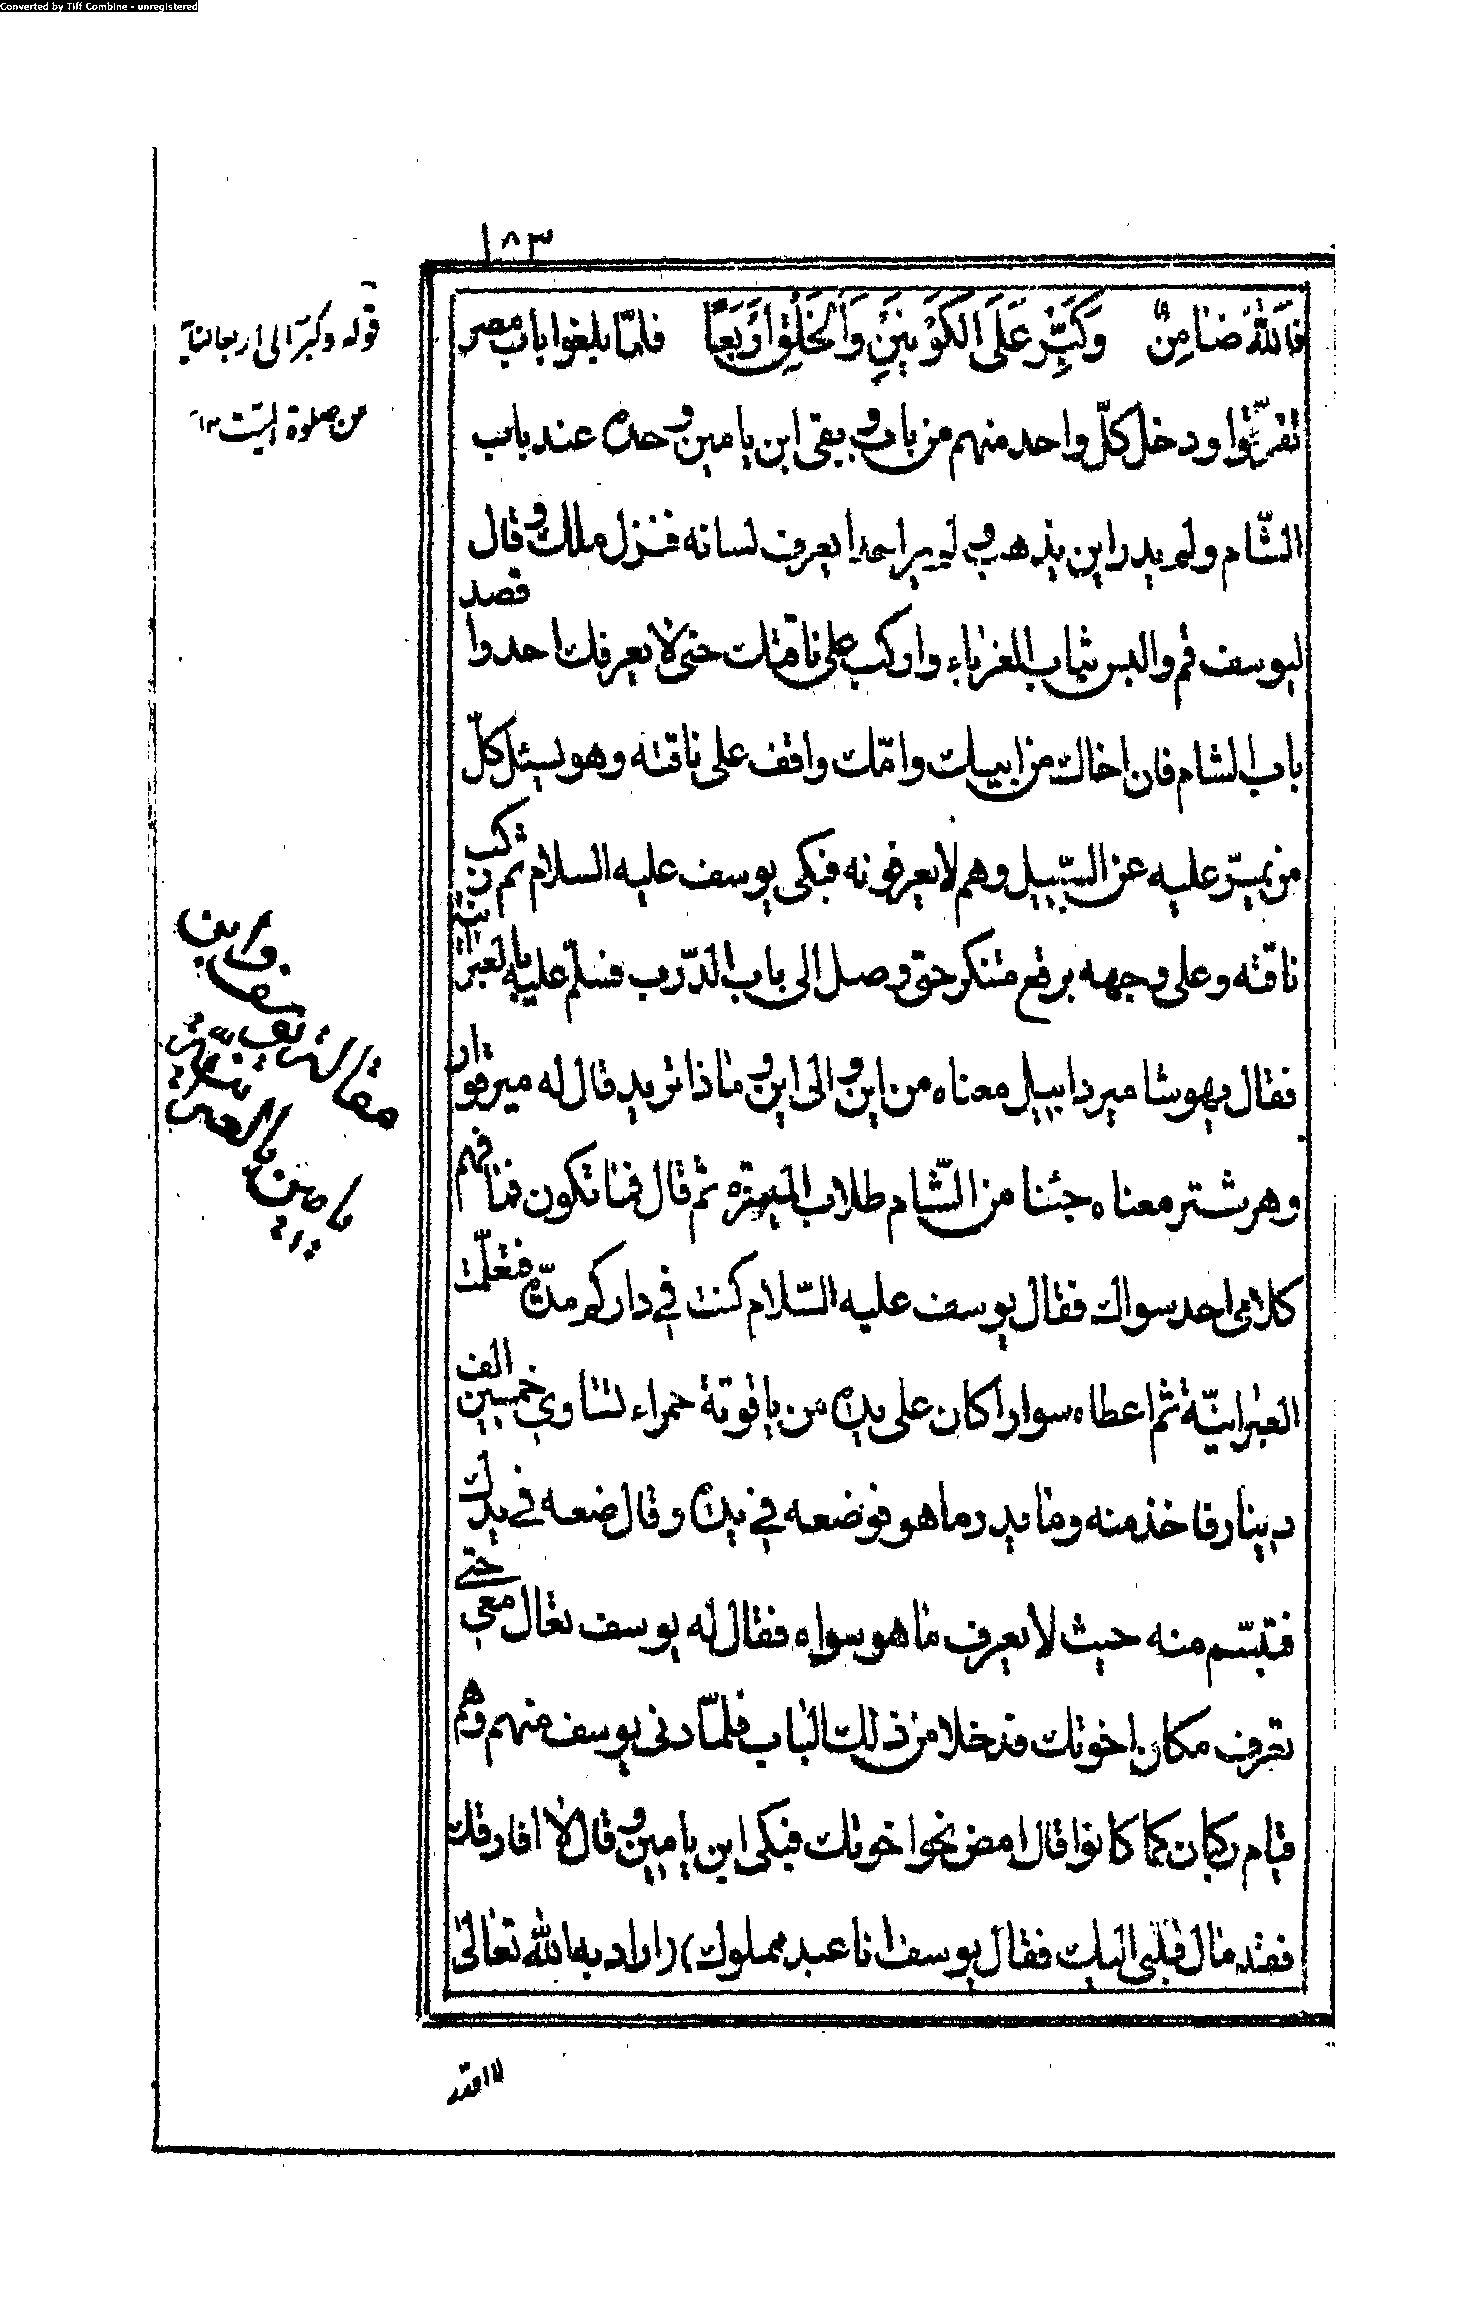 Converted by Tiff Combine - unregistered
١٨٣
فَاللّٰهُ ضَامِنٌ وَكَبِّرْ عَلَى الْكَوْنَيْنِ وَالْخَلْقِ اَرْبَعًا فلمّا بلغوا باب مصر
تفرّقوا ودخل كلّ واحد منهم من باب وبقى ابن يامين وحده عند باب
الشّام ولم يدر اين يذهب ولم ير احدا يعرف لسانه فنزل ملك وقال
ليوسف قم والبس ثياب الغرباء واركب على ناقتك حتى لا يعرفك احد واقصد
باب الشام فان اخاك من ابيك وامّك واقف على ناقته وهو يسئل كلّ
من يمرّ عليه عن السّبيل وهم لا يعرفونه فبكى يوسف عليه السلام ثم ركب
ناقته وعلى وجهه برقع متنكر حتى وصل الى باب الدّرب فسلّم عليه بالعبرانية
فقال يهوشا مير دابيل معناه من اين والى اين وما ذا تريد قال له مير قوار
وهر شتر معناه جئنا من الشّام طلاب الميرة ثم قال فمن تكون فما فهم
كلامى احد سواك فقال يوسف عليه السّلام كنت فى داركم مدّة فتعلّمت
العبرانيّة ثم اعطاه سوارا كان على يده من ياقوتة حمراء تساوى خمسين الف
دينار فاخذ منه وما يدر ما هو فوضعه فى يده وقال ضعه فى يدك
فتبسّم منه حيث لا يعرف ما هو سواه فقال له يوسف تعال معى حتى
تعرف مكان اخوتك فدخلا من ذلك الباب فلمّا دنى يوسف منهم وهم
قيام ركبان كما كانوا قال امض نحو اخوتك فبكى ابن يامين وقال لا افارقك
فقد مال قلبى اليك فقال يوسف انا عبد مملوك) (اراد به الله تعالى
لا اقدر
قوله وكبر الى اربعا كناية
من صلوة الميّت ١٢
مقالة يوسف وابن
يامين بالعبرانية